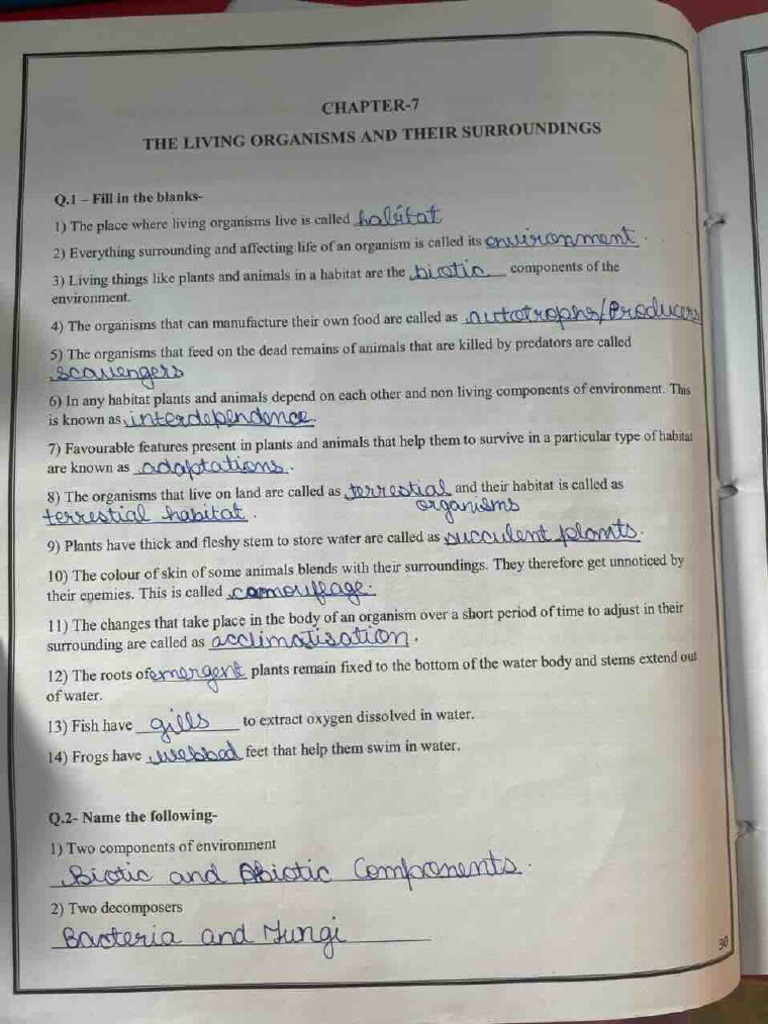 CHAPTER-7
THE LIVING ORGANISMS AND THEIR SURROUNDINGS
Q.1 – Fill in the blanks-
1) The place where living organisms live is called habitat
2) Everything surrounding and affecting life of an organism is called its environment.
3) Living things like plants and animals in a habitat are the biotic components of the
environment.
4) The organisms that can manufacture their own food are called as autotrophs/Producers
5) The organisms that feed on the dead remains of animals that are killed by predators are called
scavengers
6) In any habitat plants and animals depend on each other and non living components of environment. This
is known as interdependence.
7) Favourable features present in plants and animals that help them to survive in a particular type of habitat
are known as adaptations.
8) The organisms that live on land are called as terrestial and their habitat is called as
organisms
terrestial habitat.
9) Plants have thick and fleshy stem to store water are called as succulent plants.
10) The colour of skin of some animals blends with their surroundings. They therefore get unnoticed by
their enemies. This is called camouflage.
11) The changes that take place in the body of an organism over a short period of time to adjust in their
surrounding are called as acclimatisation.
12) The roots of emergent plants remain fixed to the bottom of the water body and stems extend out
of water.
13) Fish have gills to extract oxygen dissolved in water.
14) Frogs have webbad feet that help them swim in water.
Q.2- Name the following-
1) Two components of environment
Biotic and Abiotic Components.
2) Two decomposers
Bacteria and Fungi
30